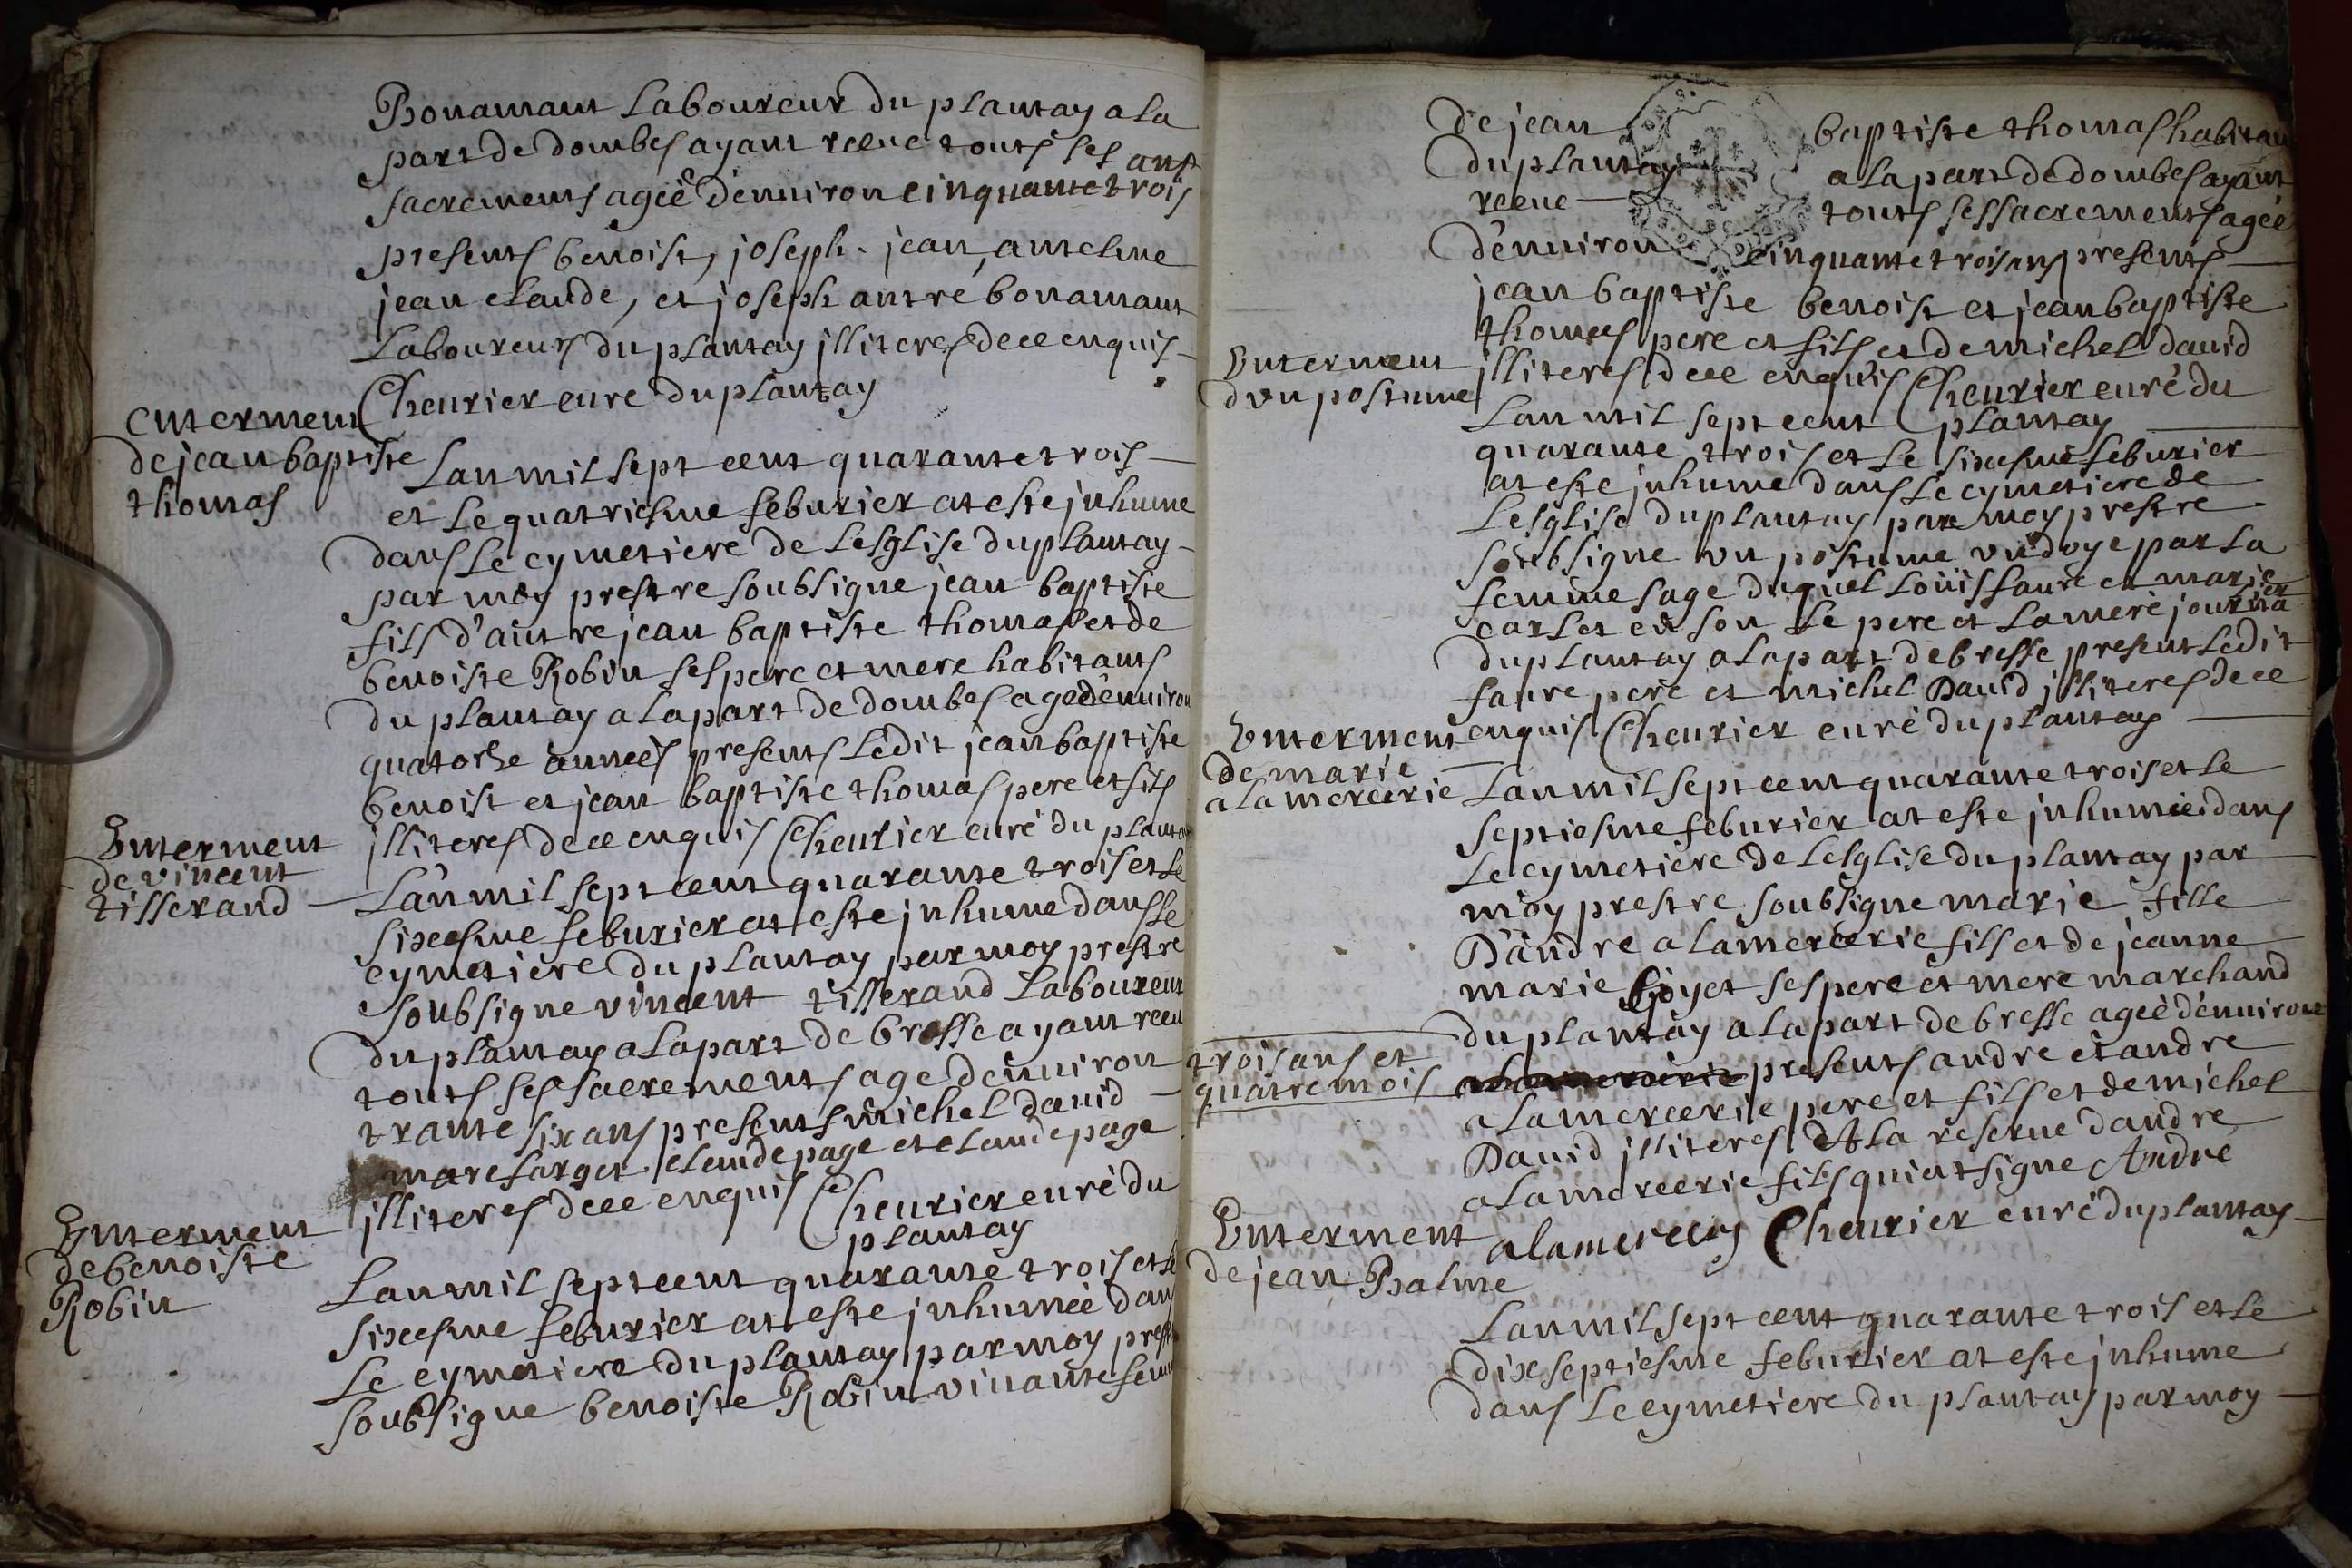 Bonamant Laboureur du plantay a la
part de dombes ayant receue touts ses
sacrements ageè dènuiron cinquante trois ans
presents benoist, joseph. jean, antelme
jean claude, et joseph autre bonamant
Laboureurs du plantay jlliteres de ce enquis
Cheurier cure du plantay
enterment
de jean baptiste
thomas
Lan mil sept cent quarante trois
et Le quatriesme feburier at este jnhume
dans Le cymetiere de Lesglise du plantay
par moy prestre soubsigne jean baptiste
fils d'autre jean baptiste thomas et de
benoiste Robin ses pere et mere habitants
du plantay a la part de dombes age dènuiron
quatorse annees presents Ledit jean baptiste
benoist et jean baptiste thomas pere et fils
jlliteres de ce enquis Cheurier curè du plantay
Enterment
de vincent
tisserand
Lan mil sept cent quarante trois et Le
sixcesme feburier at este jnhume dans Le
cymetiere du plantay par moy prestre
soubsigne vincent tisserand Laboureur
du plantay a La part de bresse ayant receu
touts ses sacrements age dènuiron
trante six ans presents michel dauid
marc farget claude page et claude page
jlliteres de ce enquis Cheurier curè du
plantay
Enterment
de benoiste
Robin
Lan mil sept cent quarante trois et Le
sixcesme feburier at este jnhumèe dans
Le cymetiere du plantay par moy prestre
soubsigne benoiste Robin viuante femme
de jean baptiste thomas habitan
du plantay a la part de dombes ayant
receue touts ses sacrements ageè
dènuiron cinquante trois ans presents
jean baptiste benoist et jean baptiste
thomas pere et fils et de michel dauid
jlliteres de ce enquis Cheurier curè du
plantay
Enterment
dvn postume
Lan mil sept cent
quarante trois et Le sixcesme feburier
at este jnhume dans Le cymetiere de
Lesglise du plantay par moy prestre
soubsigne vn postume vndoye par La
femme sage duquel Loüis faure et marie
carlet en son Le pere et La mere journaliers
du plantay a La part de bresse present Ledit
faure pere et michel Dauid jlliteres de ce
enquis Cheurier curè du plantay
Enterment
de marie
a lamercerie
Lan mil sept cent quarante trois et Le
septiesme feburier at este jnhumèe dans
Le cymetière de Lesglise du plantay par
moy prestre soubsigne marie fille
D'andre a lamercerie fils et de jeanne
marie goyet ses pere et mere marchand
du plantay a La part de bresse ageè dènuiron
trois ans et
quatre mois
presents andre et andre
a lamercerie pere et fils et de michel
Dauid jlliteres A La reserue dandre
a lamercerie fils qui at signe Andre
alamercery Cheurier curè du plantay
Enterment
de jean Balme
Lan mil sept cent quarante trois et Le
dixseptiesme feburier at este jnhume
dans Le cymetiere du plantay par moy